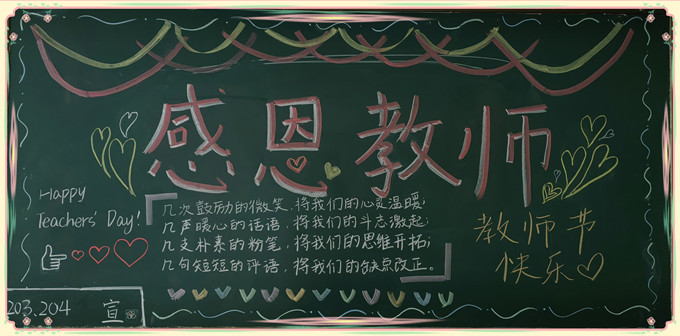 感恩教师
Happy
Teachers' Day!
几次鼓励的微笑，将我们的心灵温暖；
几声暖心的话语，将我们的斗志激起；
几支朴素的粉笔，将我们的思维开拓；
几句短短的评语，将我们的缺点改正。
教师节
快乐
203.204 宣